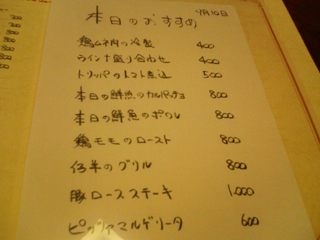 本日のおすすめ
鶏ムネ肉の冷製 400
ウインナ盛り合わせ 400
トリッパのトマト煮込 500
本日の鮮魚のカルパッチョ 800
本日の鮮魚のポワレ 800
鶏モモのロースト 800
仔羊のグリル 800
豚ロースステーキ 1,000
ピッツァマルゲリータ 600